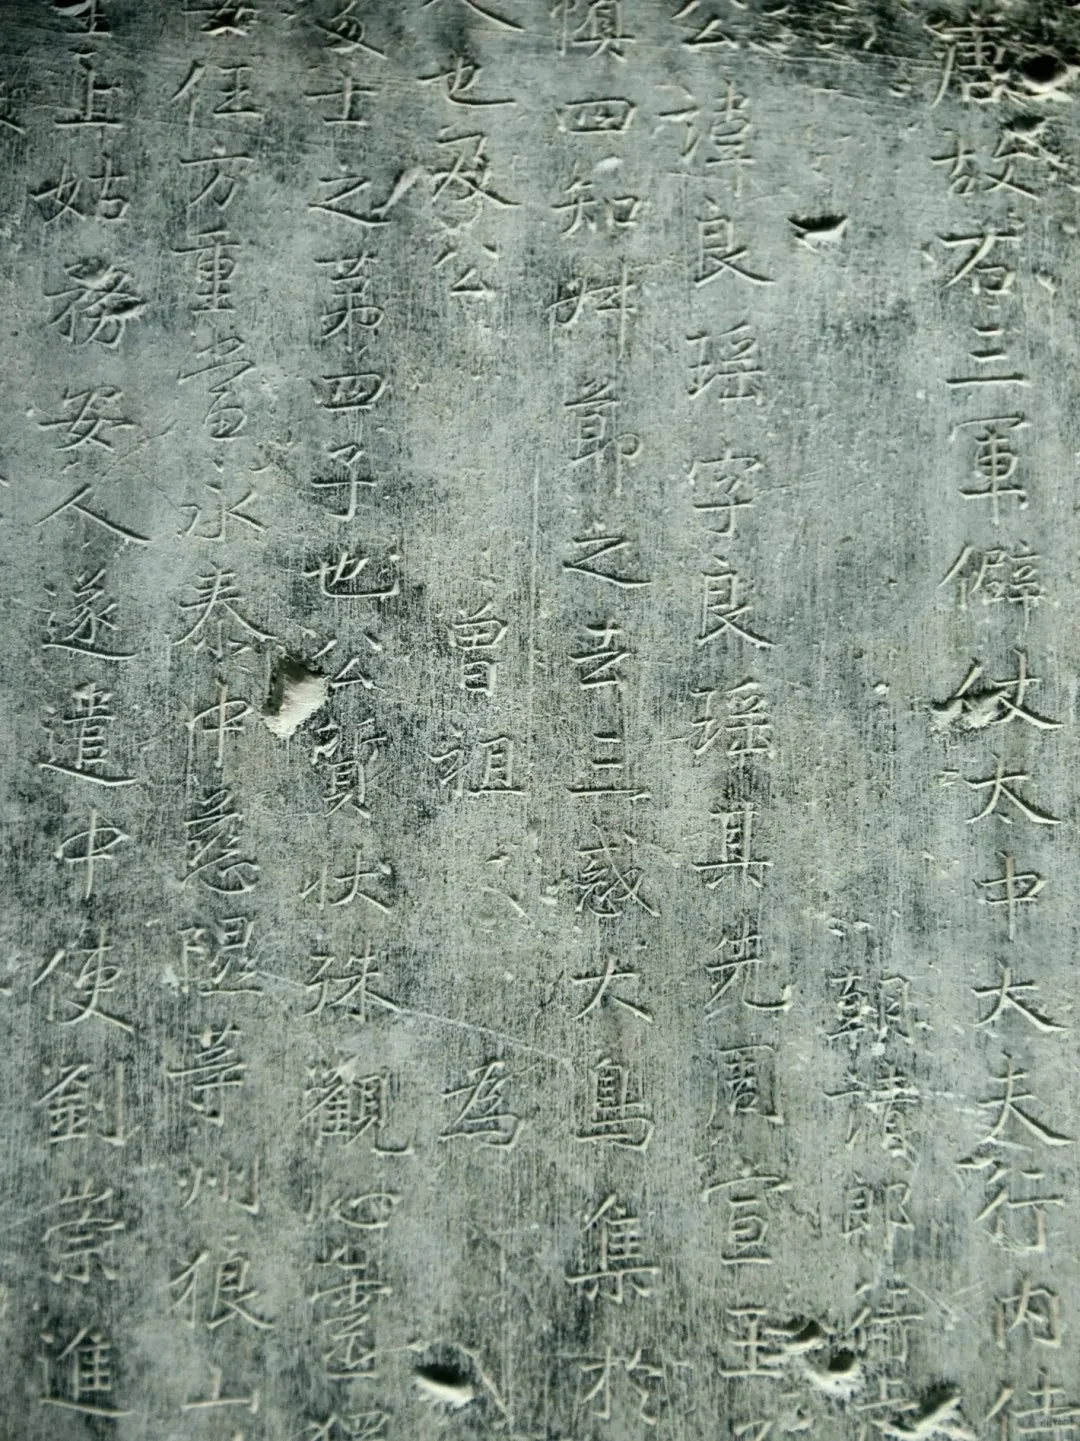 唐故右三軍僻仗太中大夫行內侍
朝請郎行
公諱良瑶字良瑶其先周宣王
慎四知艸節之去三惑大鳥集於
人也及公 曾祖 為
之士之第四子也公質狀殊觀心靈
任方重當永泰中慈隰等州狼山
上姑務安人遂遣中使劉崇進